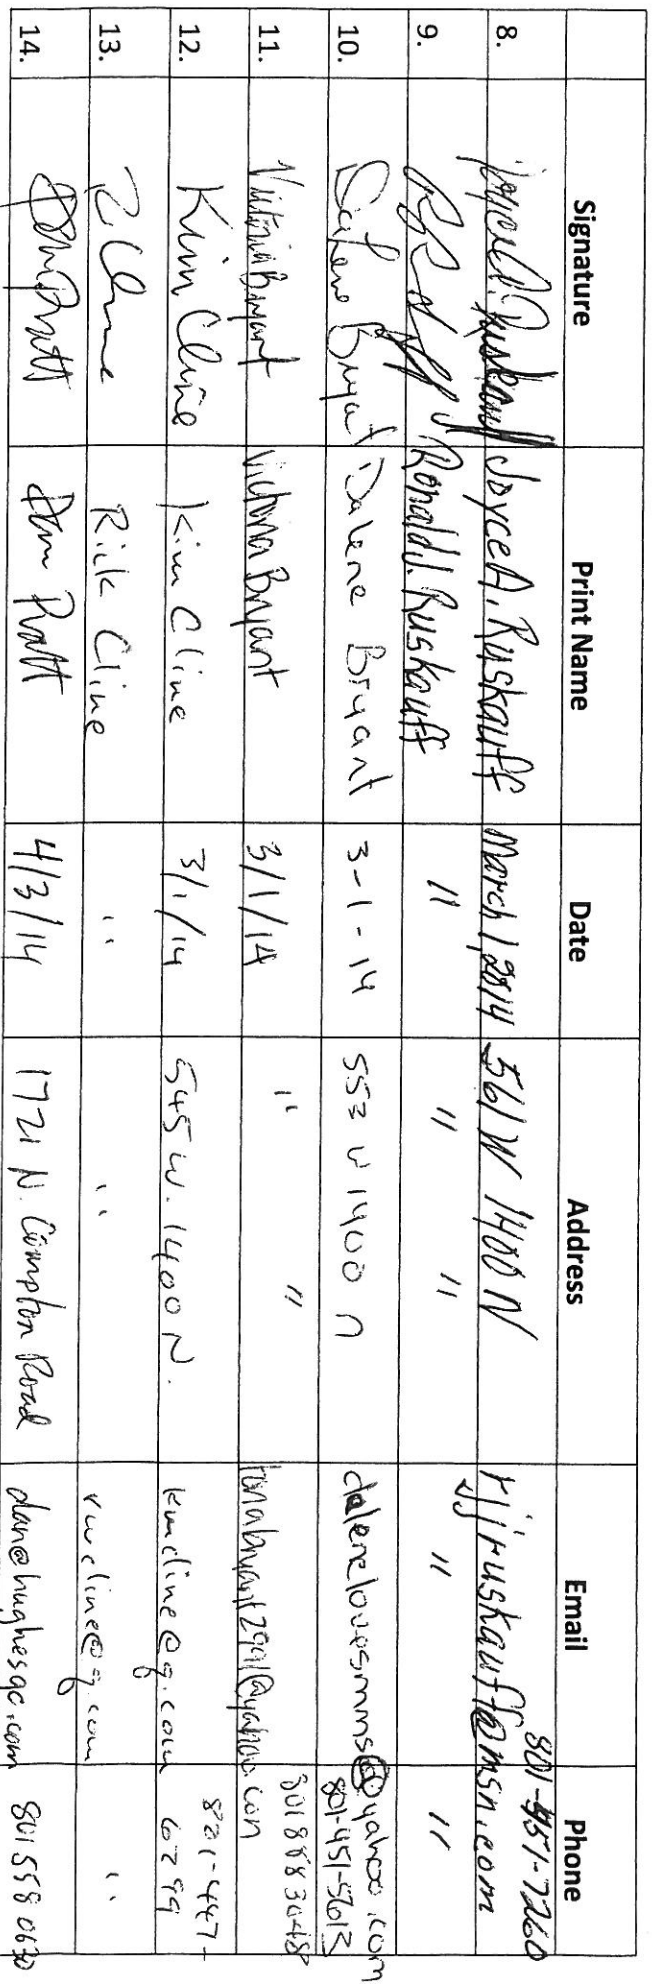 Signature Print Name Date Address Email Phone
8. Joyce A. Ruskauff Joyce A. Ruskauff March 1, 2014 561 W 1400 N rjjruskauff@msn.com 801-451-7260
9. Ronald J. Ruskauff " " " " "
10. Dalene Bryant Dalene Bryant 3-1-14 553 W 1400 n dalenelovesmms@yahoo.com 801-451-5613
11. Victoria Bryant Victoria Bryant 3/1/14 " " 
12. Kim Cline Kim Cline 3/1/14 545 W. 1400 N. kmcline@q.com 801-447-
6299
13. R Cline Rick Cline " " rwcline@q.com "
14. Dan Pratt Dan Pratt 4/3/14 1721 N. Compton Road dan@hughesgc.com 801 558 0630